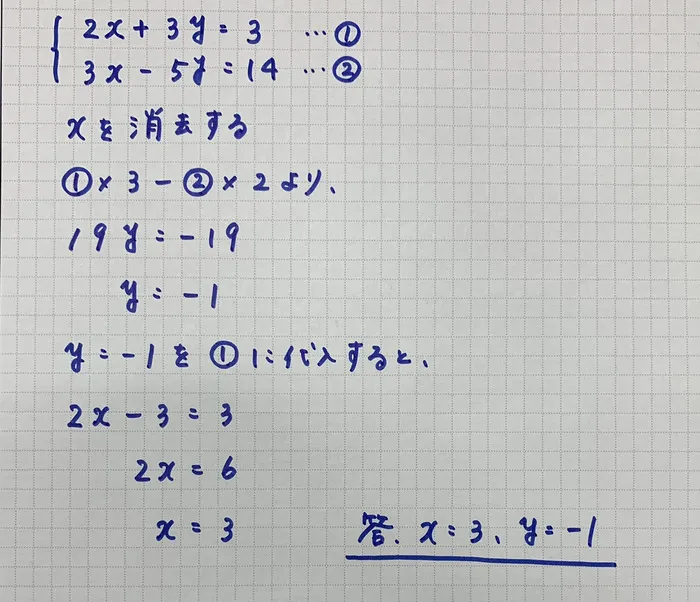 2x + 3y = 3 …①
3x - 5y = 14 …②
xを消去する
①×3-②×2より、
19y = -19
y = -1
y = -1を①に代入すると、
2x - 3 = 3
2x = 6
x = 3
答. x = 3、y = -1